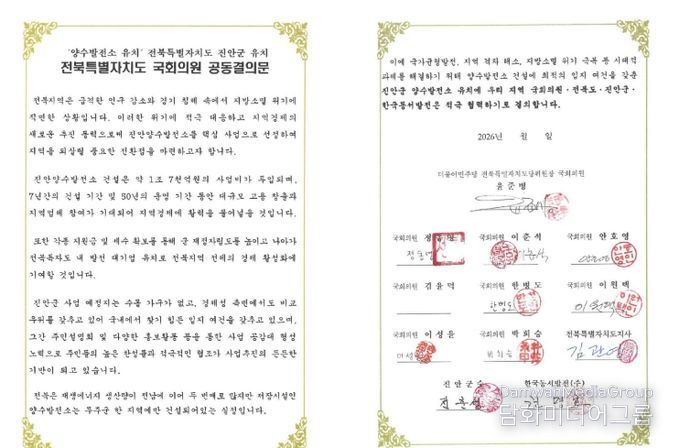 '양수발전소 유치' 전북특별자치도 진안군 유치
전북특별자치도 국회의원 공동결의문
전북지역은 급격한 인구 감소와 경기 침체 속에서 지방소멸 위기에
직면한 상황입니다. 이러한 위기에 적극 대응하고 지역경제의
새로운 추진 동력으로써 진안양수발전소를 핵심 사업으로 선정하여
지역을 되살릴 중요한 전환점을 마련하고자 합니다.
진안양수발전소 건설은 약 1조 7천억원의 사업비가 투입되며,
7년간의 건설 기간 및 50년의 운영 기간 동안 대규모 고용 창출과
지역업체 참여가 기대되어 지역경제에 활력을 불어넣을 것입니다.
또한 각종 지원금 및 세수 확보를 통해 군 재정자립도를 높이고 나아가
전북특자도 내 발전 대기업 유치로 전북지역 전체의 경제 활성화에
기여할 것입니다.
진안군 사업 예정지는 수몰 가구가 없고, 경제성 측면에서도 비교
우위를 갖추고 있어 국내에서 찾기 힘든 입지 여건을 갖추고 있으며,
그간 주민설명회 및 다양한 홍보활동 등을 통한 사업 공감대 형성
노력으로 주민들의 높은 찬성률과 적극적인 협조가 사업추진의 든든한
기반이 되고 있습니다.
전북은 재생에너지 생산량이 전남에 이어 두 번째로 많지만 저장시설인
양수발전소는 무주군 한 지역에만 건설되어있는 실정입니다.
이에 국가균형발전, 지역 격차 해소, 지방소멸 위기 극복 등 시대적
과제를 해결하기 위해 양수발전소 건설에 최적의 입지 여건을 갖춘
진안군 양수발전소 유치에 우리 지역 국회의원·전북도·진안군·
한국동서발전은 적극 협력하기로 결의합니다.
2026년 월 일
더불어민주당 전북특별자치도당위원장 국회의원
윤준병
국회의원 정동영 국회의원 이춘석 국회의원 안호영
정동영
국회의원 김윤덕 국회의원 한병도 국회의원 이원택
한병도 이원택
국회의원 이성윤 국회의원 박희승 전북특별자치도지사
김관영
진안군수 한국동서발전(주)
전춘성
DamwhaMediaGroup
담화미디어그룹